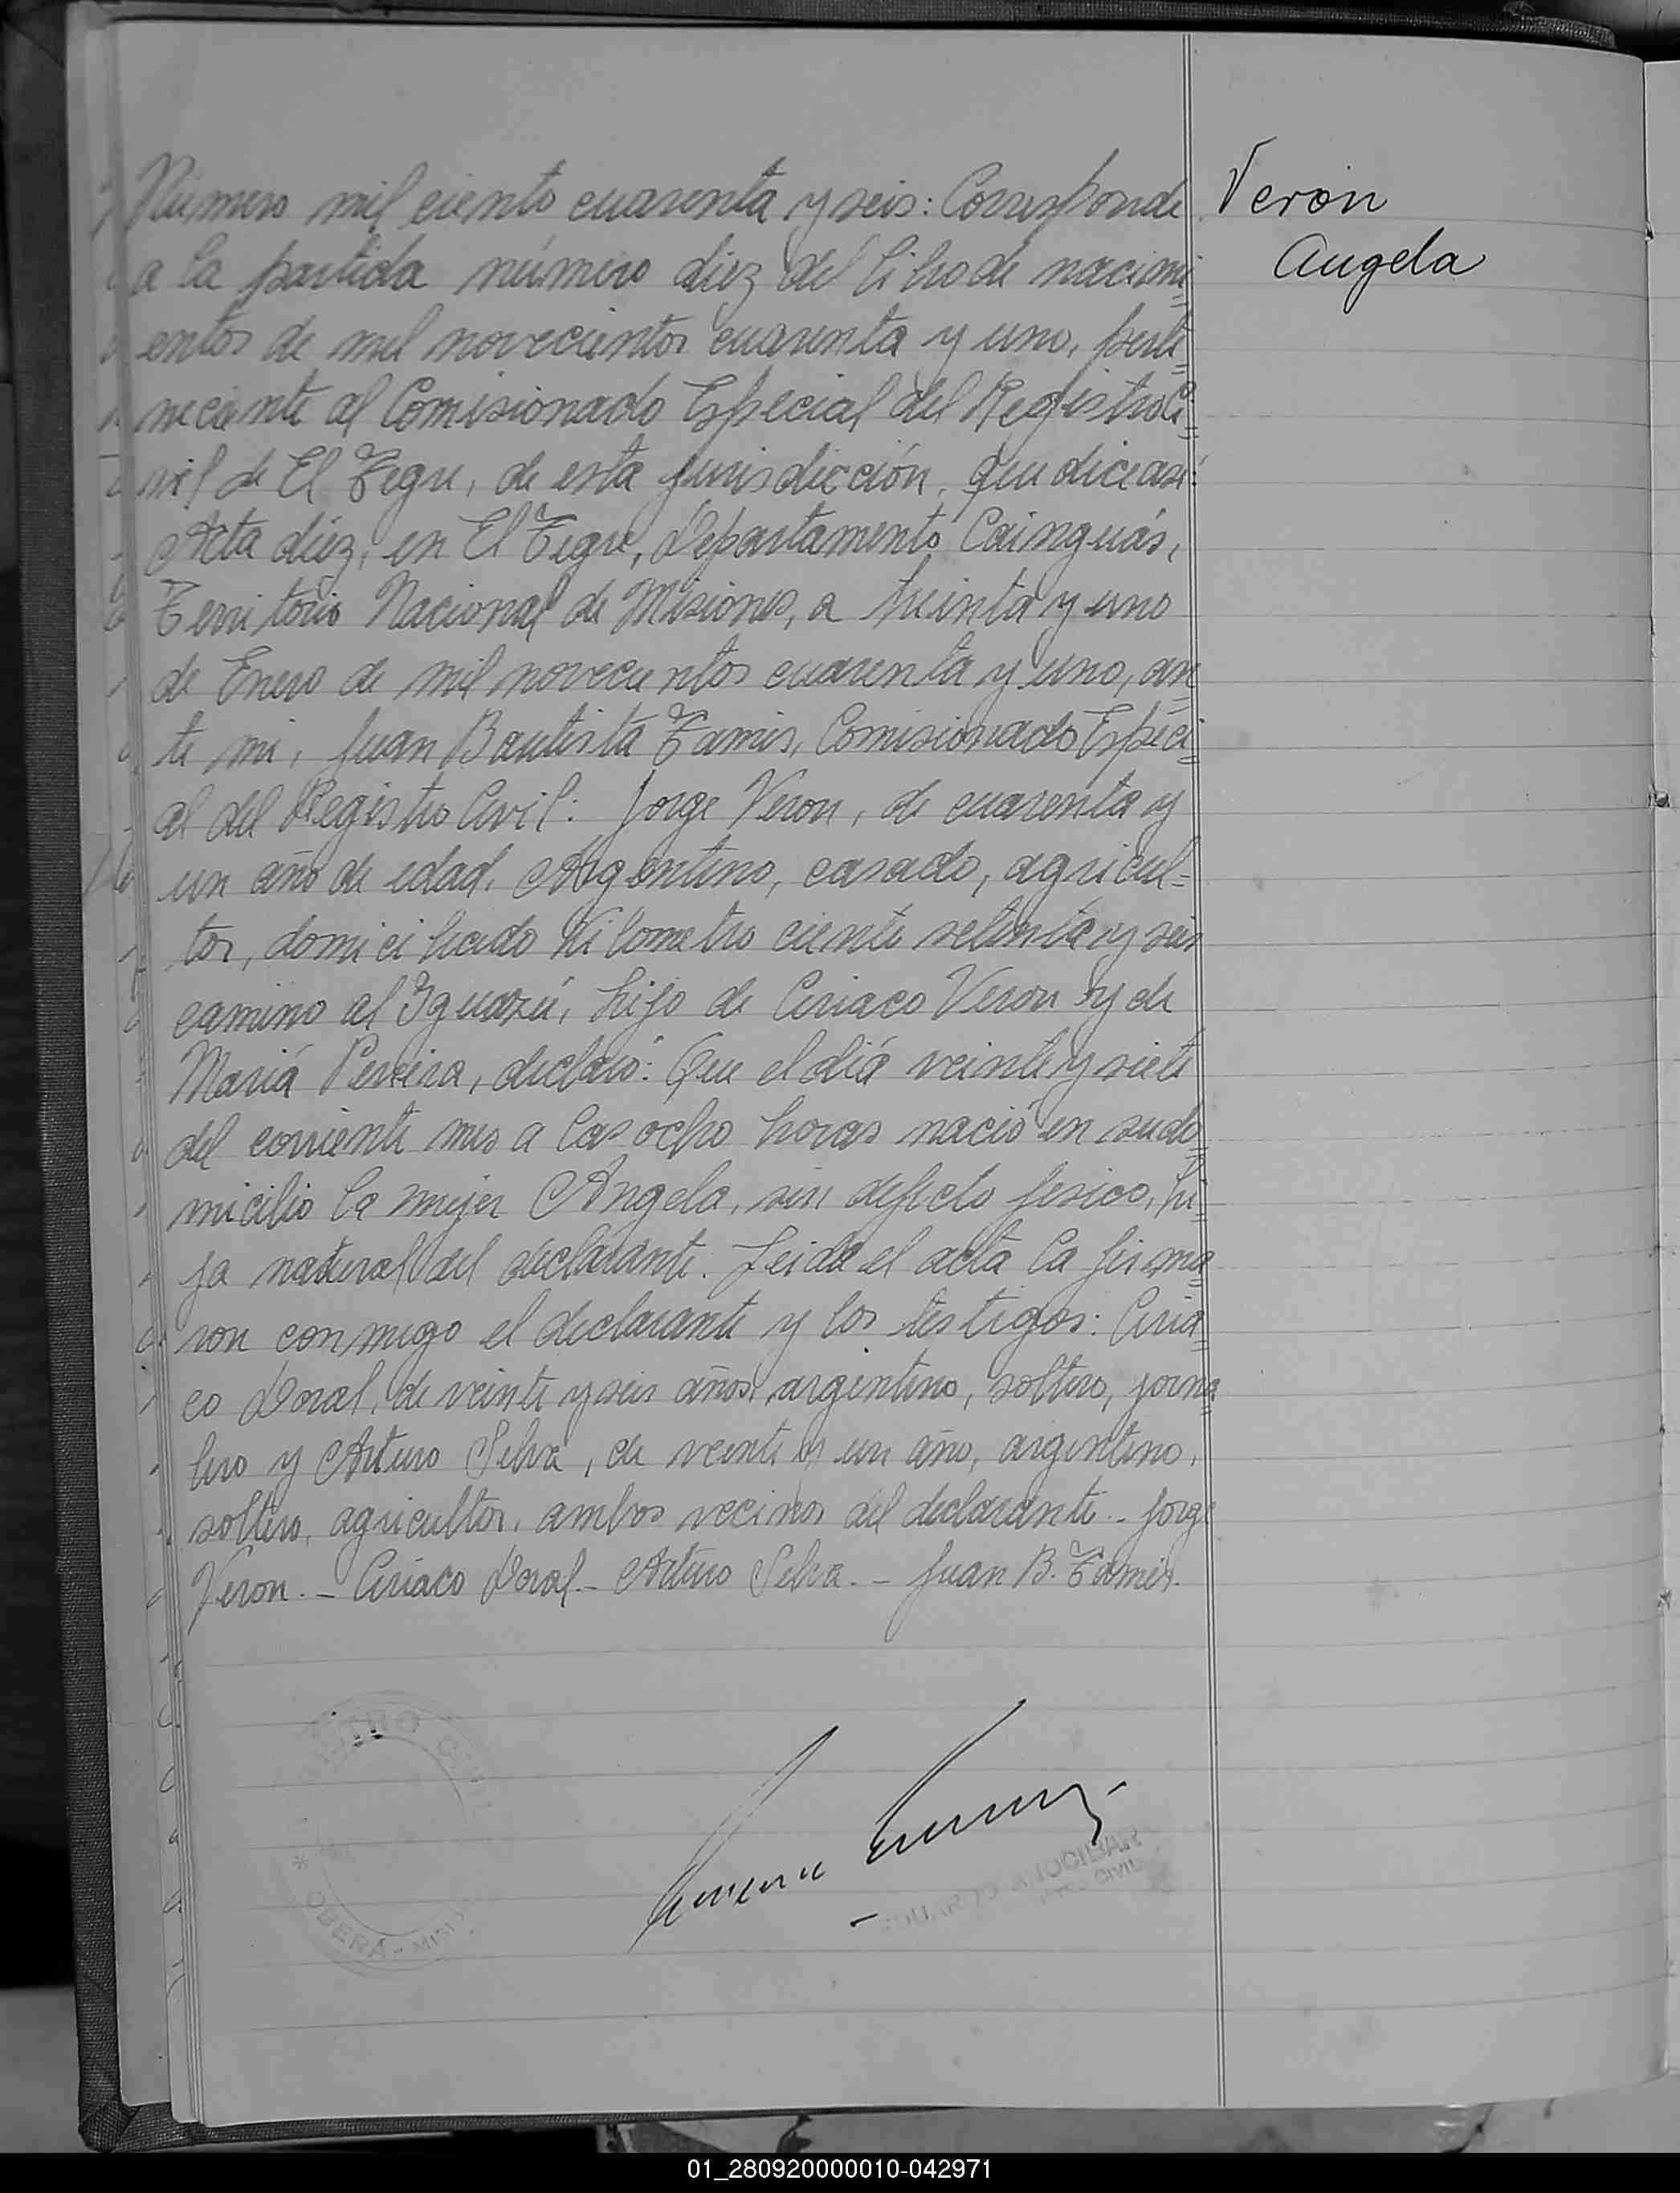 Número mil ciento cuarenta y seis: Corresponde
a la partida número diez del libro de nacimi=
entos de mil novecientos cuarenta y uno, perte=
neciente al Comisionado Especial del Registro Ci=
vil de El Tigre, de esta jurisdicción, que dice así:
Acta diez, en El Tigre, Departamento Cainguás,
Territorio Nacional de Misiones, a treinta y uno
de Enero de mil novecientos cuarenta y uno, an=
te mi, Juan Bautista Tamis, Comisionado Especi=
al del Registro Civil: Jorge Veron, de cuarenta y
un año de edad, Argentino, casado, agricul=
tor, domiciliado Kilometro ciento setenta y seis
camino al Iguazú, hijo de Ciriaco Veron y de
María Pereira, declaró: Que el día veinte y siete
del corriente mes a las ocho horas nació en su do=
micilio la mujer Angela, sin defecto fisico, hi=
ja natural del declarante. Leida el acta la firma=
ron conmigo el declarante y los testigos: Ciria=
co Doral, de veinte y seis años, argentino, soltero, jorna
lero y Arturo Silva, de veinte y un año, argentino,
soltero, agricultor, ambos vecinos del declarante.- Jorge
Veron.- Ciriaco Doral.- Arturo Silva.- Juan B. Tamis.
Veron
Angela
REGISTRO CIVIL
OBERÁ - MISIONES
EDUARDO ANOCIBAR
CIVIL
01_280920000010-042971